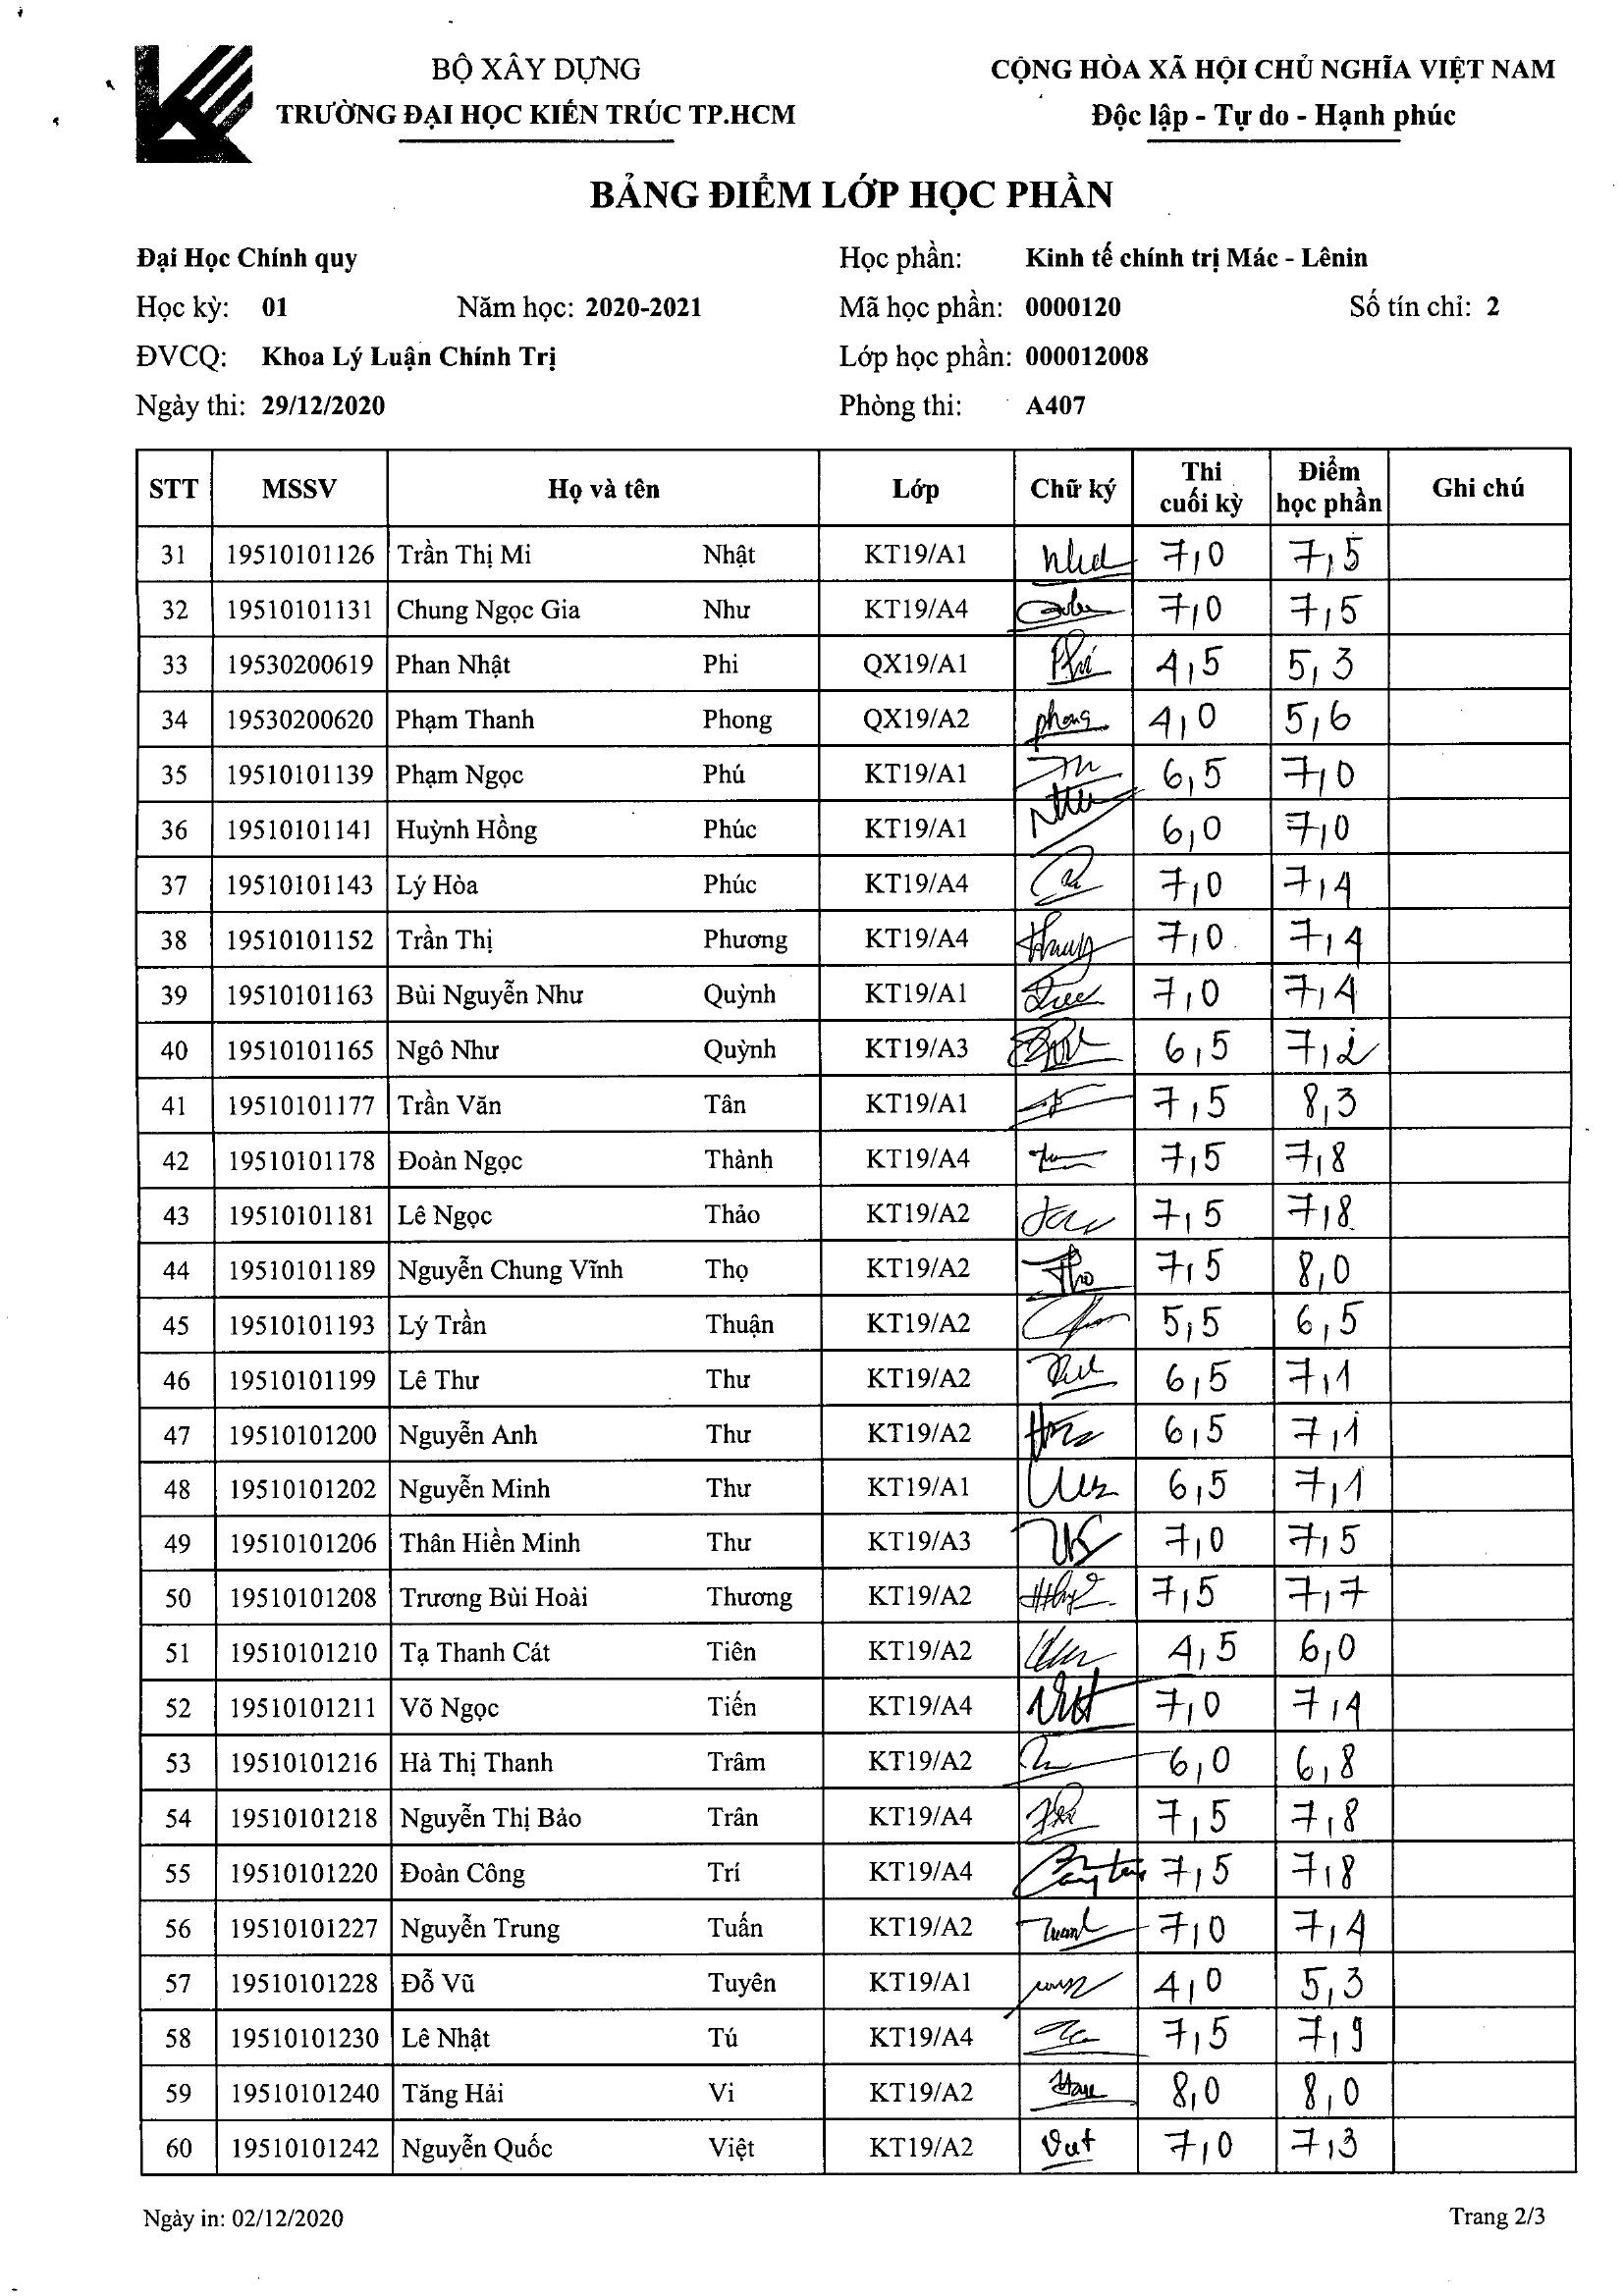 BỘ XÂY DỰNG
TRƯỜNG ĐẠI HỌC KIẾN TRÚC TP.HCM
CỘNG HÒA XÃ HỘI CHỦ NGHĨA VIỆT NAM
Độc lập - Tự do - Hạnh phúc
BẢNG ĐIỂM LỚP HỌC PHẦN
Đại Học Chính quy Học phần: Kinh tế chính trị Mác - Lênin
Học kỳ: 01 Năm học: 2020-2021 Mã học phần: 0000120 Số tín chỉ: 2
ĐVCQ: Khoa Lý Luận Chính Trị Lớp học phần: 000012008
Ngày thi: 29/12/2020 Phòng thi: A407
STT MSSV Họ và tên Lớp Chữ ký Thi cuối kỳ Điểm học phần Ghi chú
31 19510101126 Trần Thị Mi Nhật KT19/A1 7,0 7,5
32 19510101131 Chung Ngọc Gia Như KT19/A4 7,0 7,5
33 19530200619 Phan Nhật Phi QX19/A1 Phi 4,5 5,3
34 19530200620 Phạm Thanh Phong QX19/A2 phong 4,0 5,6
35 19510101139 Phạm Ngọc Phú KT19/A1 6,5 7,0
36 19510101141 Huỳnh Hồng Phúc KT19/A1 6,0 7,0
37 19510101143 Lý Hòa Phúc KT19/A4 7,0 7,4
38 19510101152 Trần Thị Phương KT19/A4 7,0 7,4
39 19510101163 Bùi Nguyễn Như Quỳnh KT19/A1 7,0 7,4
40 19510101165 Ngô Như Quỳnh KT19/A3 6,5 7,2
41 19510101177 Trần Văn Tân KT19/A1 7,5 8,3
42 19510101178 Đoàn Ngọc Thành KT19/A4 7,5 7,8
43 19510101181 Lê Ngọc Thảo KT19/A2 7,5 7,8
44 19510101189 Nguyễn Chung Vĩnh Thọ KT19/A2 Thọ 7,5 8,0
45 19510101193 Lý Trần Thuận KT19/A2 5,5 6,5
46 19510101199 Lê Thư Thư KT19/A2 6,5 7,1
47 19510101200 Nguyễn Anh Thư KT19/A2 6,5 7,1
48 19510101202 Nguyễn Minh Thư KT19/A1 6,5 7,1
49 19510101206 Thân Hiền Minh Thư KT19/A3 7,0 7,5
50 19510101208 Trương Bùi Hoài Thương KT19/A2 7,5 7,7
51 19510101210 Tạ Thanh Cát Tiên KT19/A2 4,5 6,0
52 19510101211 Võ Ngọc Tiến KT19/A4 7,0 7,4
53 19510101216 Hà Thị Thanh Trâm KT19/A2 6,0 6,8
54 19510101218 Nguyễn Thị Bảo Trân KT19/A4 7,5 7,8
55 19510101220 Đoàn Công Trí KT19/A4 7,5 7,8
56 19510101227 Nguyễn Trung Tuấn KT19/A2 7,0 7,4
57 19510101228 Đỗ Vũ Tuyên KT19/A1 4,0 5,3
58 19510101230 Lê Nhật Tú KT19/A4 7,5 7,9
59 19510101240 Tăng Hải Vi KT19/A2 8,0 8,0
60 19510101242 Nguyễn Quốc Việt KT19/A2 7,0 7,3
Ngày in: 02/12/2020 Trang 2/3